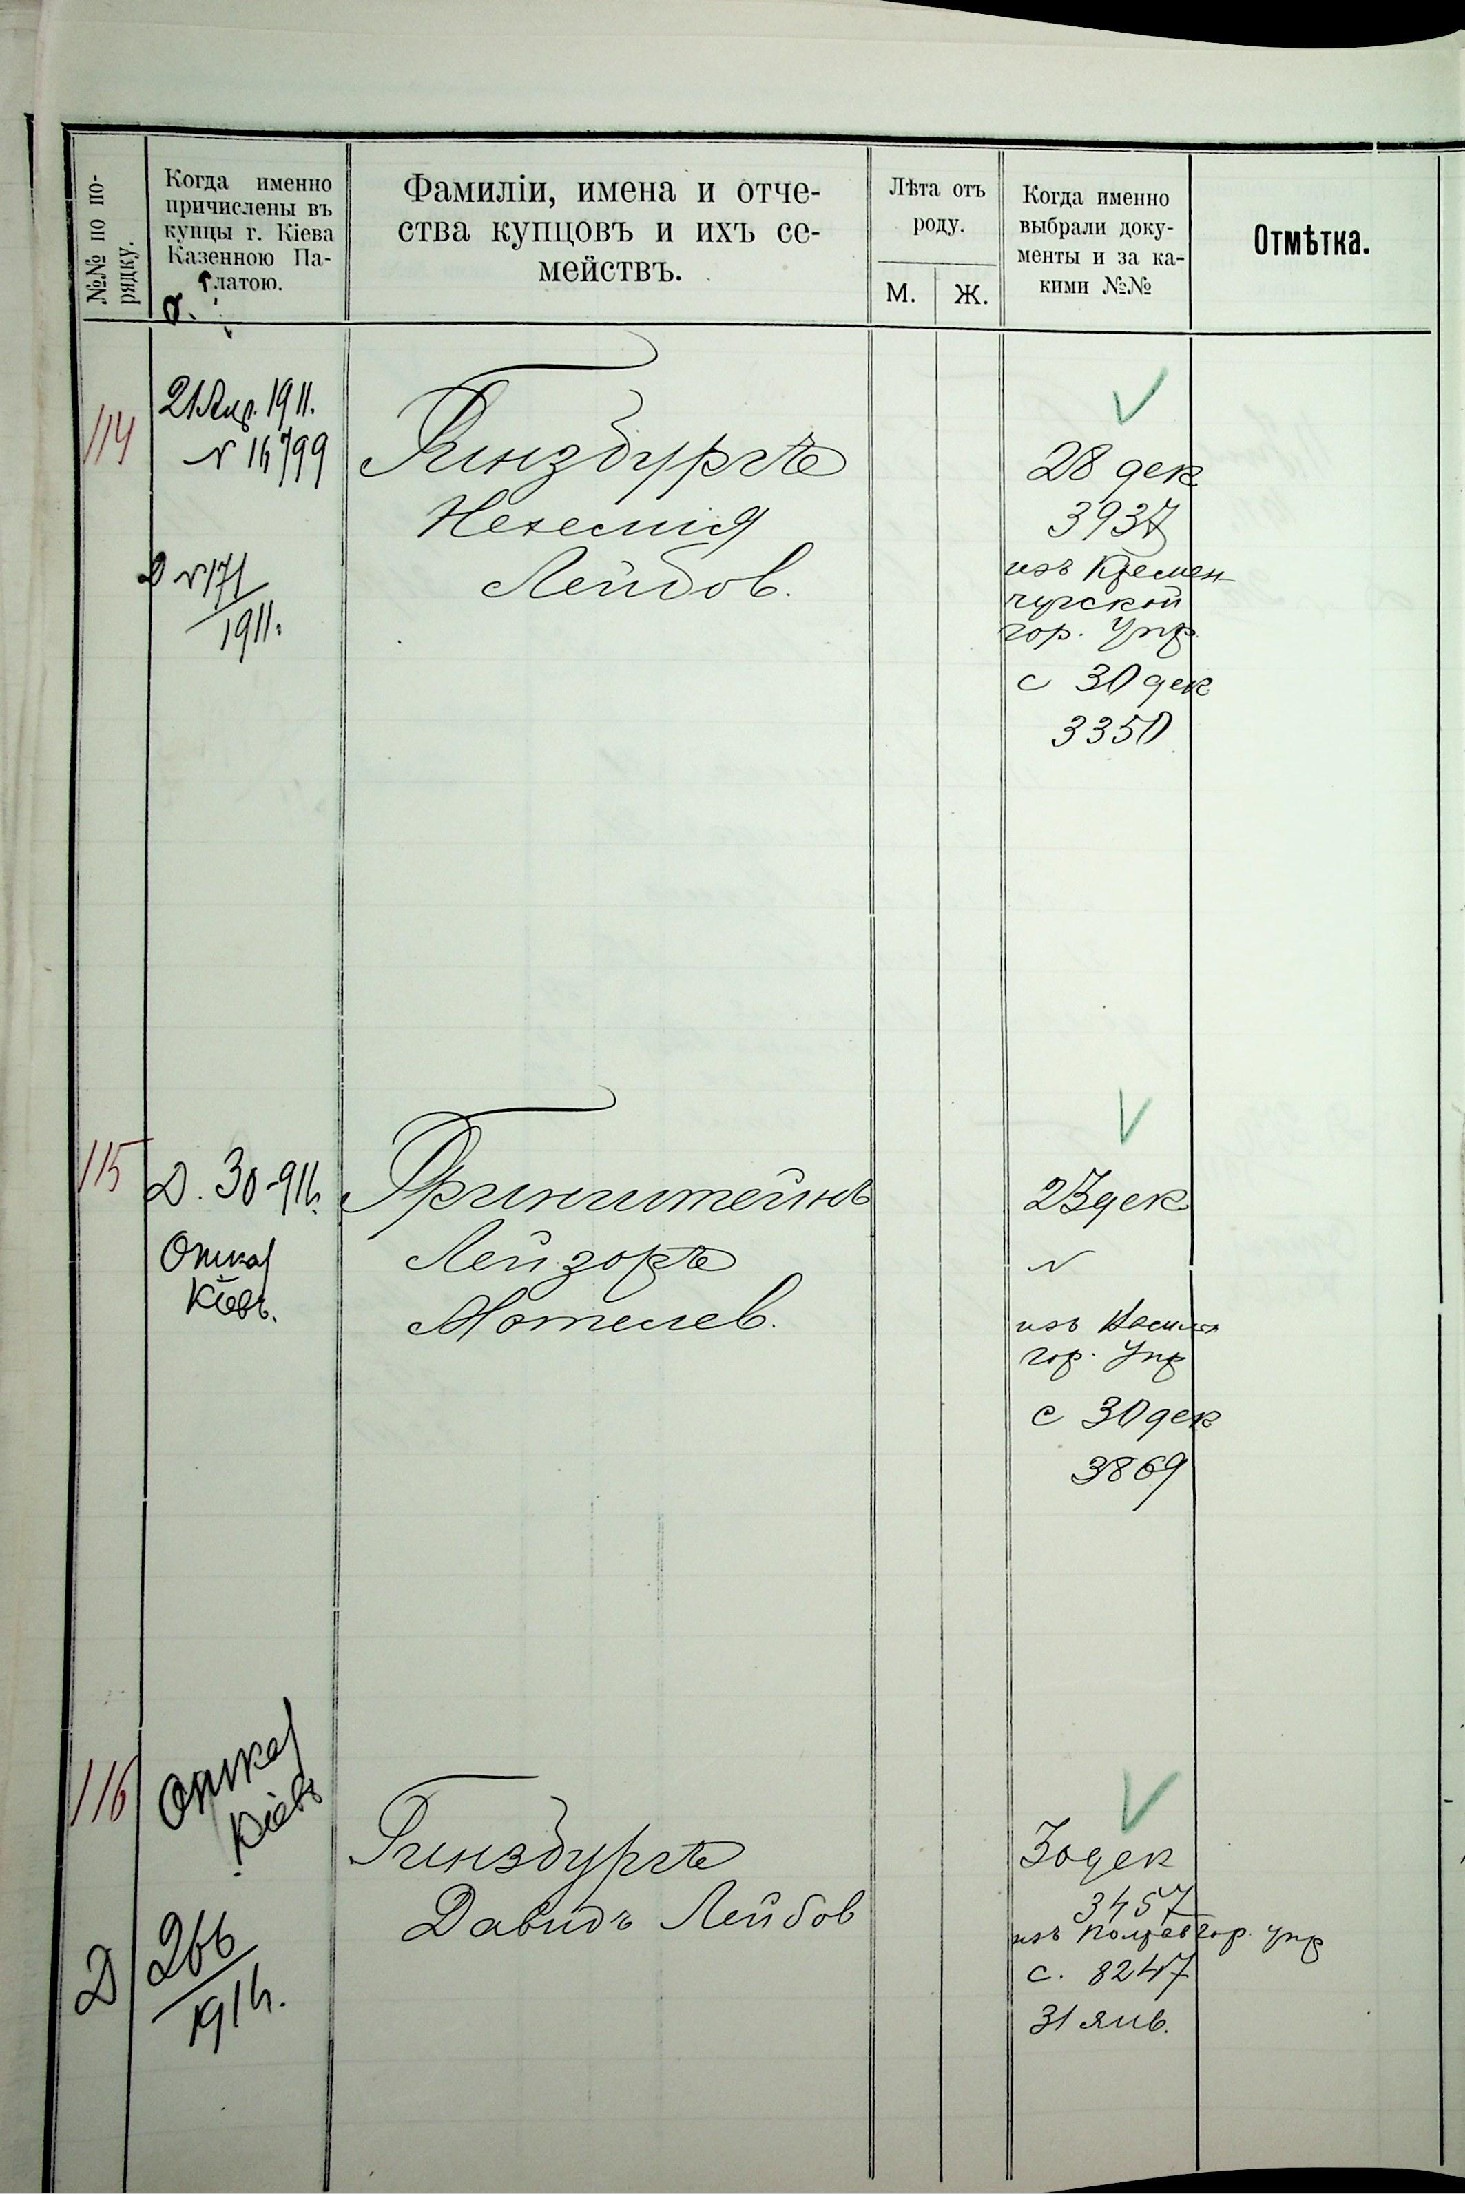 №№ по по-
рядку.
Когда именно
причислены въ
купцы г. Кіева
Казенною Па-
латою.
Фамиліи, имена и отче-
ства купцовъ и ихъ се-
мействъ.
Лѣта отъ
роду.
М.
Ж.
Когда именно
выбрали доку-
менты и за ка-
кими №№
Отмѣтка.
114
21 Апр. 1911.
Гинзбургъ
Нехемія
Лейбов.
28 дек
3937
изъ Кремен
чугской
гор. Упр.
с 30 дек
3350
Д №171
1911.
115
Д. 30-91
Кіевъ.
Гринштейнъ
Лейзоръ
Мотелев.
23 дек
№
изъ
гор. Упр
с 30 дек
3869
116
Кіевъ
Д 266
191
Гинзбургъ
Давидъ Лейбов
30 дек
3457
изъ Полтав гор. упр
с. 8247
31 янв.